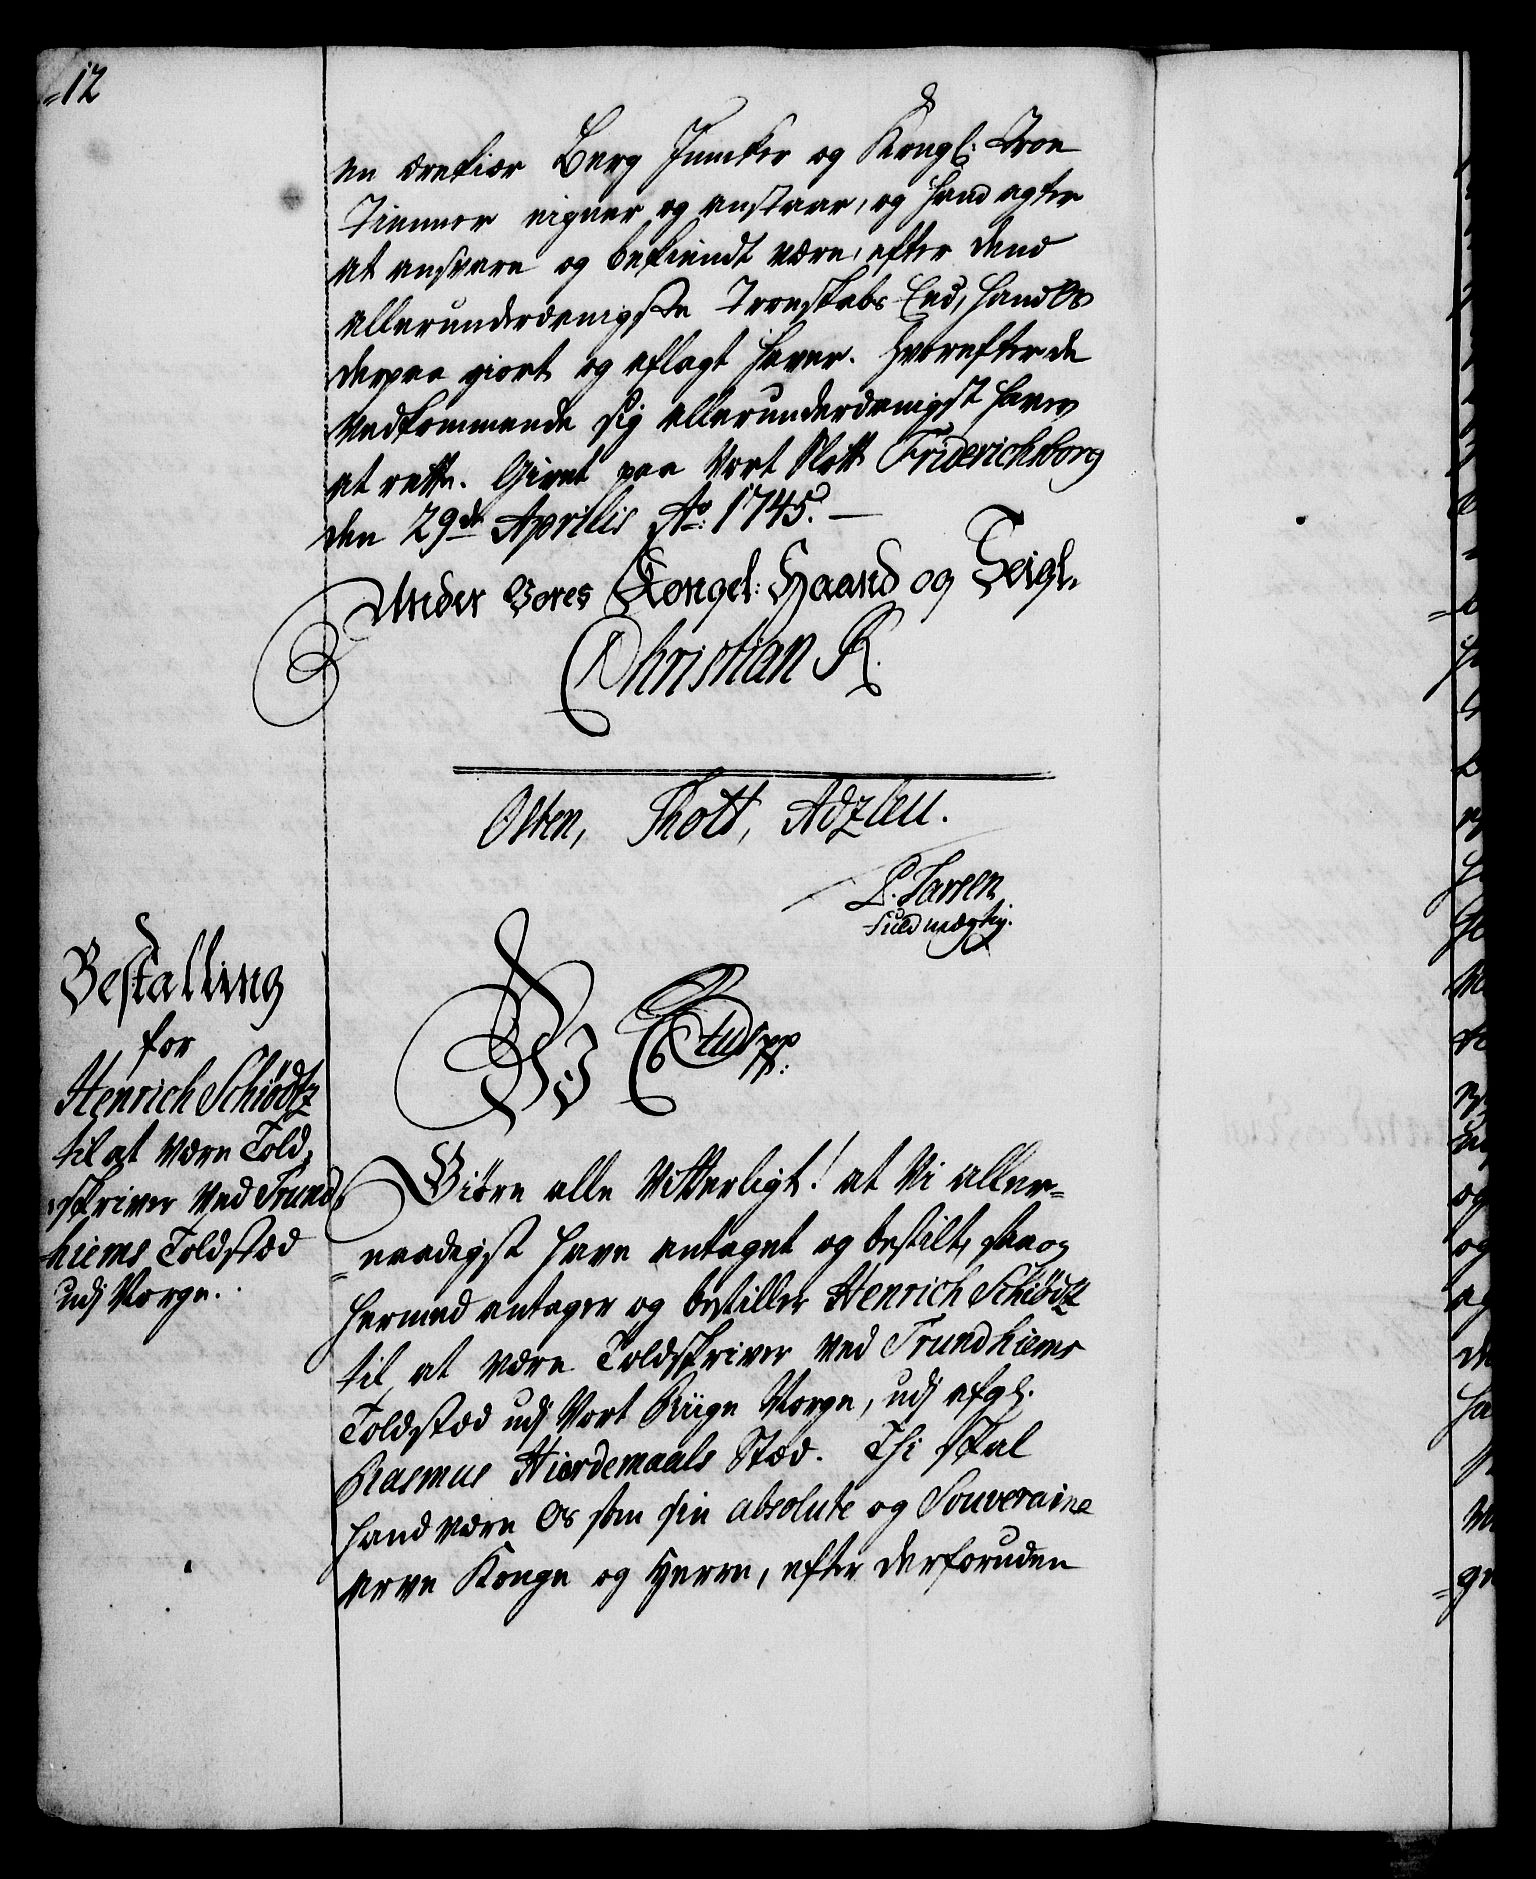 12
en ærekiær Berg Juncker og Kongl: Troe
Tienner eigner og anstaar, og hand agter
at ansvare og bekiendt være, efter dend
allerunderdanigste Troeskabs Eed, hand Os
derpaa giort og aflagt haver. Hvorefter de
Vedkommende sig allerunderdanigst haver
at rette. Givet paa Vort Slott Friderichsborg
den 29de Aprilis Ao: 1745. —
Under Vores Kongel: Haand og Seigl.
Christian R.
Osten, Thott, Adzleu.
L. Larsen
Fuldmægtig.
Bestalling
for
Henrich Schiödtz
til at være Told-
skriver ved Trund-
hiems Toldstæd
udj Norge.
Wi C 6tus pp:
Giöre alle Vitterligt! at Vi aller-
naadigst have antaget og bestilt, saa og
hermed antager og bestiller Henrich Schiödtz
til at være Toldskriver ved Trundhiems
Toldstæd udj Vort Riige Norge, udj afgl.
Rasmus Hiordemaals Stæd. Thi skal
hand være Os som sin absolute og Souveraine
arve Konge og Herre, efter derforuden